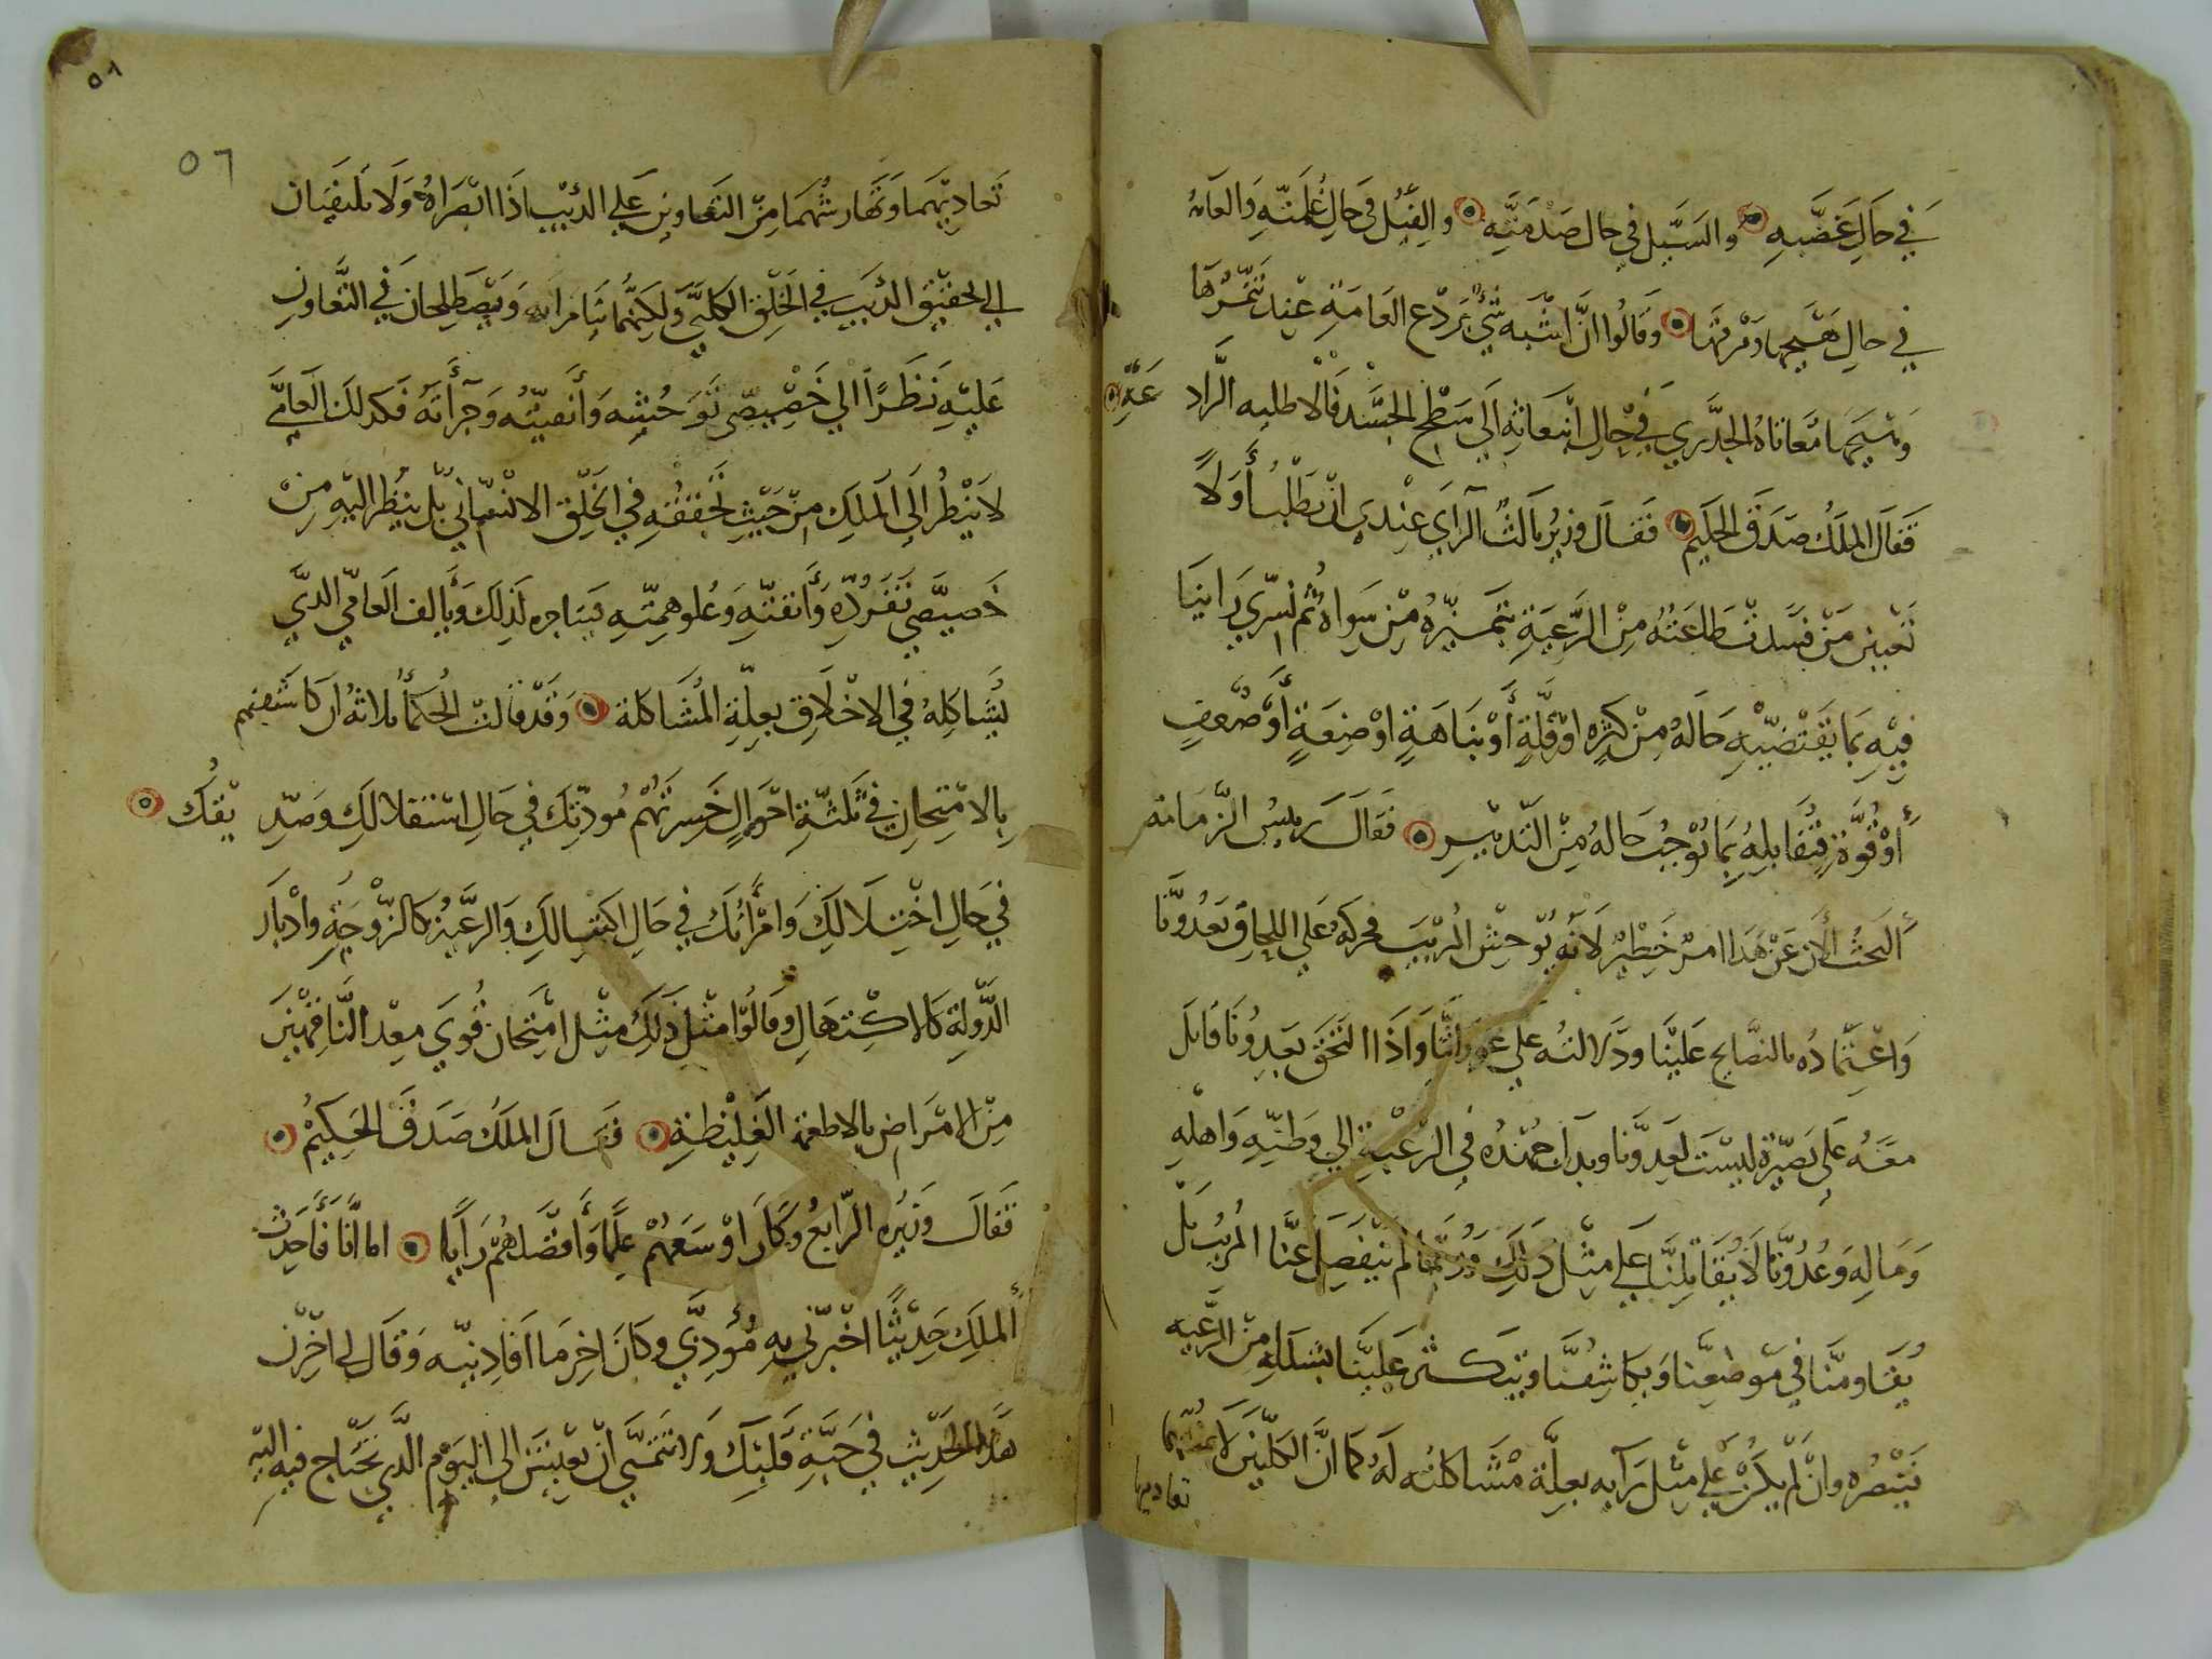 في حال غضبه والسيل في حال صدمته والفيل في حال غلمته والعامة
في حال هيجها ومرقها وقالوا ان اشبه شي بردع العامة عند تنمرها
وهيجها معاناة الجدري في حال انبعاثه الي سطح الجسد فالاطليه الرادعة
فقال الملك صدق الحكيم فقال وزير ثالث الراي عندي ان نطلب أولا
تعيين من فسدت طاعته من الرعية بتميزه من سواه ثم نسري راينا
فيه بما يقتضيه حاله من كثره او قلة أو نباهة او ضعة أو ضعف
أو قوة فنقابله بما توجب حاله من التدبير فقال رييس الزمازمة
ألبحث الان عن هذا امر خطير لانه يوحش المريب فحركه علي اللحاق بعدونا
واعتماده بالنصايح علينا ودلالته علي عوراتنا واذا التحق بعدونا قابل
معه علي بصيرة ليست لعدونا وبذل جهده في الرغبة الي وطنه واهله
وماله وعدونا لا يقابلنا علي مثل ذلك وربما لم ينفصل عنا المريب بل
يقاومنا في موضعنا ويكاشفنا ويتكثر علينا بسلله من الرعيه
تنصره وان لم يكن علي مثل رايه بعلة مشاكلته له كما ان الكلبين لا يمنعهما
تعاديهما
٥٦
تعاديهما وتهارشهما من التعاون علي الذيب اذا ابصراه ولا يلتفتان
الي تحقيق الذيب في الخلق الكلبي ولكنهما يتامران ويصطلحان في التعاون
عليه نظرا الي خصيصي توحشه وأنفيته وجرأته فكذلك العامي
لا ينظر الي الملك من حيث تحققه في الخلق الانساني بل ينظر اليه من
خصيصي تفرده وأنفته وعلو همته فيناجزه لذلك ويألف العامي الذي
يشاكله في الاخلاق بعلة المشاكلة وقد قالت الحكمأ ثلاثة ان كاشفتهم
بالامتحان في ثلثة احوال خسرتهم مودتك في حال استثقالك وصديقك
في حال اختلالك وامرأتك في حال اكتهالك والرعية كالزوجة وادبار
الدولة كالاكتهال وقالوا مثل ذلك مثل امتحان قوي معد الناقهين
من الامراض بالاطعمة الغليظة فقال الملك صدق الحكيم
فقال وزيره الرابع وكان اوسعهم علما وأفضلهم رايا اما انا فأحدث
ألملك حديثا اخبرني به مؤدبي وكان اخر ما افادنيه وقال لي اخزن
هذا الحديث في حبة قلبك ولا تتمني ان تعيش الي اليوم الذي تحتاج فيه اليه